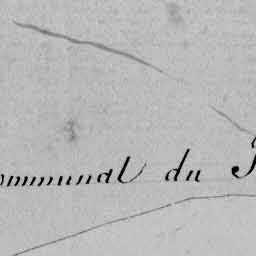 ommunal du